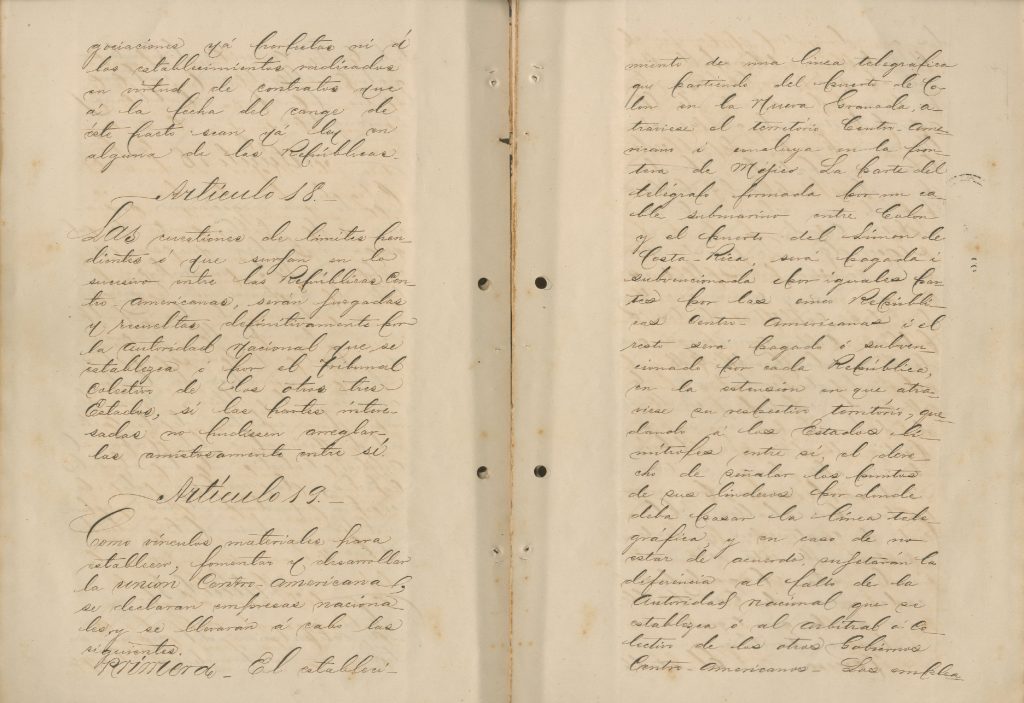 gociaciones yá perfectas ni á
los establecimientos radicados
en virtud de contratos que
á la fecha del cange de
éste pacto sean yá ley en
alguna de las Repúblicas.
Artículo 18.-
Las cuestiones de límites pen-
dientes ó que surjan en lo
sucesivo entre las Repúblicas Cen-
tro-Americanas, serán juzgadas
y resueltas definitivamente por
la autoridad Nacional que se
establezca o por el Tribunal
Colectivo de los otros tres
Estados, si las partes intere-
sadas no pudiesen arreglar-
las amistosamente entre sí.
Artículo 19.-
Como vínculos materiales para
establecer, fomentar y desarrollar
la unión Centro-americana,
se declaran empresas naciona
les, y se llevarán á cabo las
siguientes.
Primera - El estableci-
miento de una línea telegráfica
que partiendo del puerto de Co-
lón en la Nueva Granada, a-
traviese el territorio Centro-ame-
ricano i concluya en la fron-
tera de Méjico. La parte del
telégrafo formada por un ca-
ble submarino entre Colon
y el puerto del Limon de
Costa-Rica, será pagada i
subvencionada por iguales par-
tes por las cinco Repúbli-
cas Centro-Americanas i el
resto será pagado ó subven-
cionado por cada República,
en la extensión en que atra-
viese su respectivo territorio, que
dando á los Estados li-
mítrofes entre si, el dere-
cho de señalar los puntos
de sus linderos por donde
deba pasar la línea tele-
gráfica, y en caso de no
estar de acuerdo, sujetarán la
diferencia al fallo de la
Autoridad Nacional que se
establezca ó al arbitral ó Co-
lectivo de los otros Gobiernos
Centro-Americanos - Los emplea